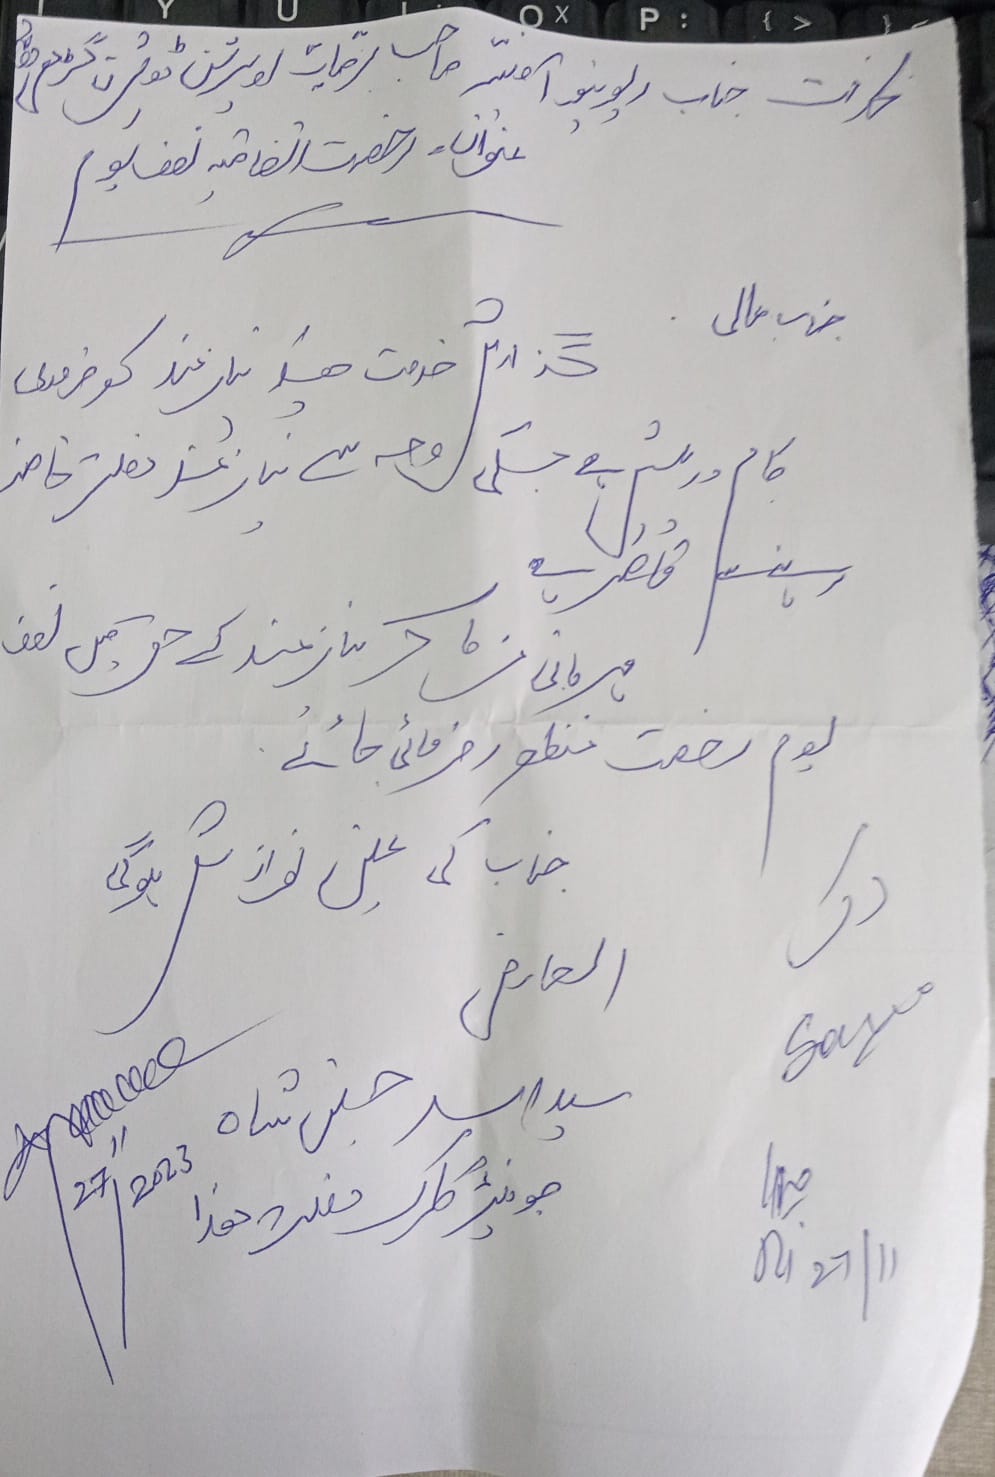 بخدمت جناب ریونیو آفیسر صاحب اپریشن ڈویژن
عنوان:- رخصت اتفاقیہ نصف یوم
جناب عالی
گذارش خدمت هیکہ نیازمند کو ضروری
کام درپیش ہے جسکی وجہ سے نیازمند دفتر حاضر
رہنے سے قاصر ہے
مہربانی فرما کر نیازمند کے حق میں نصف
یوم رخصت منظور فرمائی جائے
جناب کی عین نوازش ہوگی
العارض
سید اسد حسین شاہ
جونیئر کلرک دفتر ھذا
27/11/2023
27/11